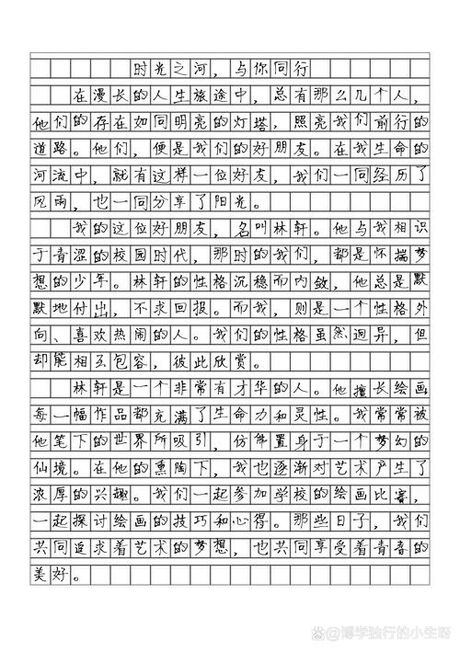 时光之河，与你同行
在漫长的人生旅途中，总有那么几个人，
他们的存在如同明亮的灯塔，照亮我们前行的
道路。他们，便是我们的好朋友。在我生命的
河流中，就有这样一位好友，我们一同经历了
风雨，也一同分享了阳光。
我的这位好朋友，名叫林轩。他与我相识
于青涩的校园时代，那时的我们，都是怀揣梦
想的少年。林轩的性格沉稳而内敛，他总是默
默地付出，不求回报。而我，则是一个性格外
向、喜欢热闹的人。我们的性格虽然迥异，但
却能相互包容，彼此欣赏。
林轩是一个非常有才华的人。他擅长绘画
每一幅作品都充满了生命力和灵性。我常常被
他笔下的世界所吸引，仿佛置身于一个梦幻的
仙境。在他的熏陶下，我也逐渐对艺术产生了
浓厚的兴趣。我们一起参加学校的绘画比赛，
一起探讨绘画的技巧和心得。那些日子，我们
共同追求着艺术的梦想，也共同享受着青春的
美好。
@博学独行的小生呀